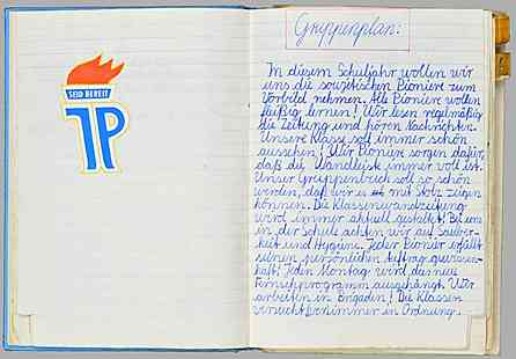 SEID BEREIT
JP
Gruppenplan:
In diesem Schuljahr wollen wir
uns die sowjetischen Pioniere zum
Vorbild nehmen. Alle Pioniere wollen
fleißig lernen! Wir lesen regelmäßig
die Zeitung und hören Nachrichten.
Unsere Klasse soll immer schön
aussehen! Wir Pioniere sorgen dafür,
daß die Wandleiste immer voll ist.
Unser Gruppenbuch soll so schön
werden, daß wir es mit Stolz zeigen
können. Die Klassenwandzeitung
wird immer aktuell gestaltet! Bei uns
in der Schule achten wir auf Sauber-
keit und Hygiene. Jeder Pionier erfüllt
seinen persönlichen Auftrag gewissen-
haft! Jeden Montag wird das neue
Fernsehprogramm ausgehängt. Wir
arbeiten in Brigaden! Die Klassen
immer in Ordnung.